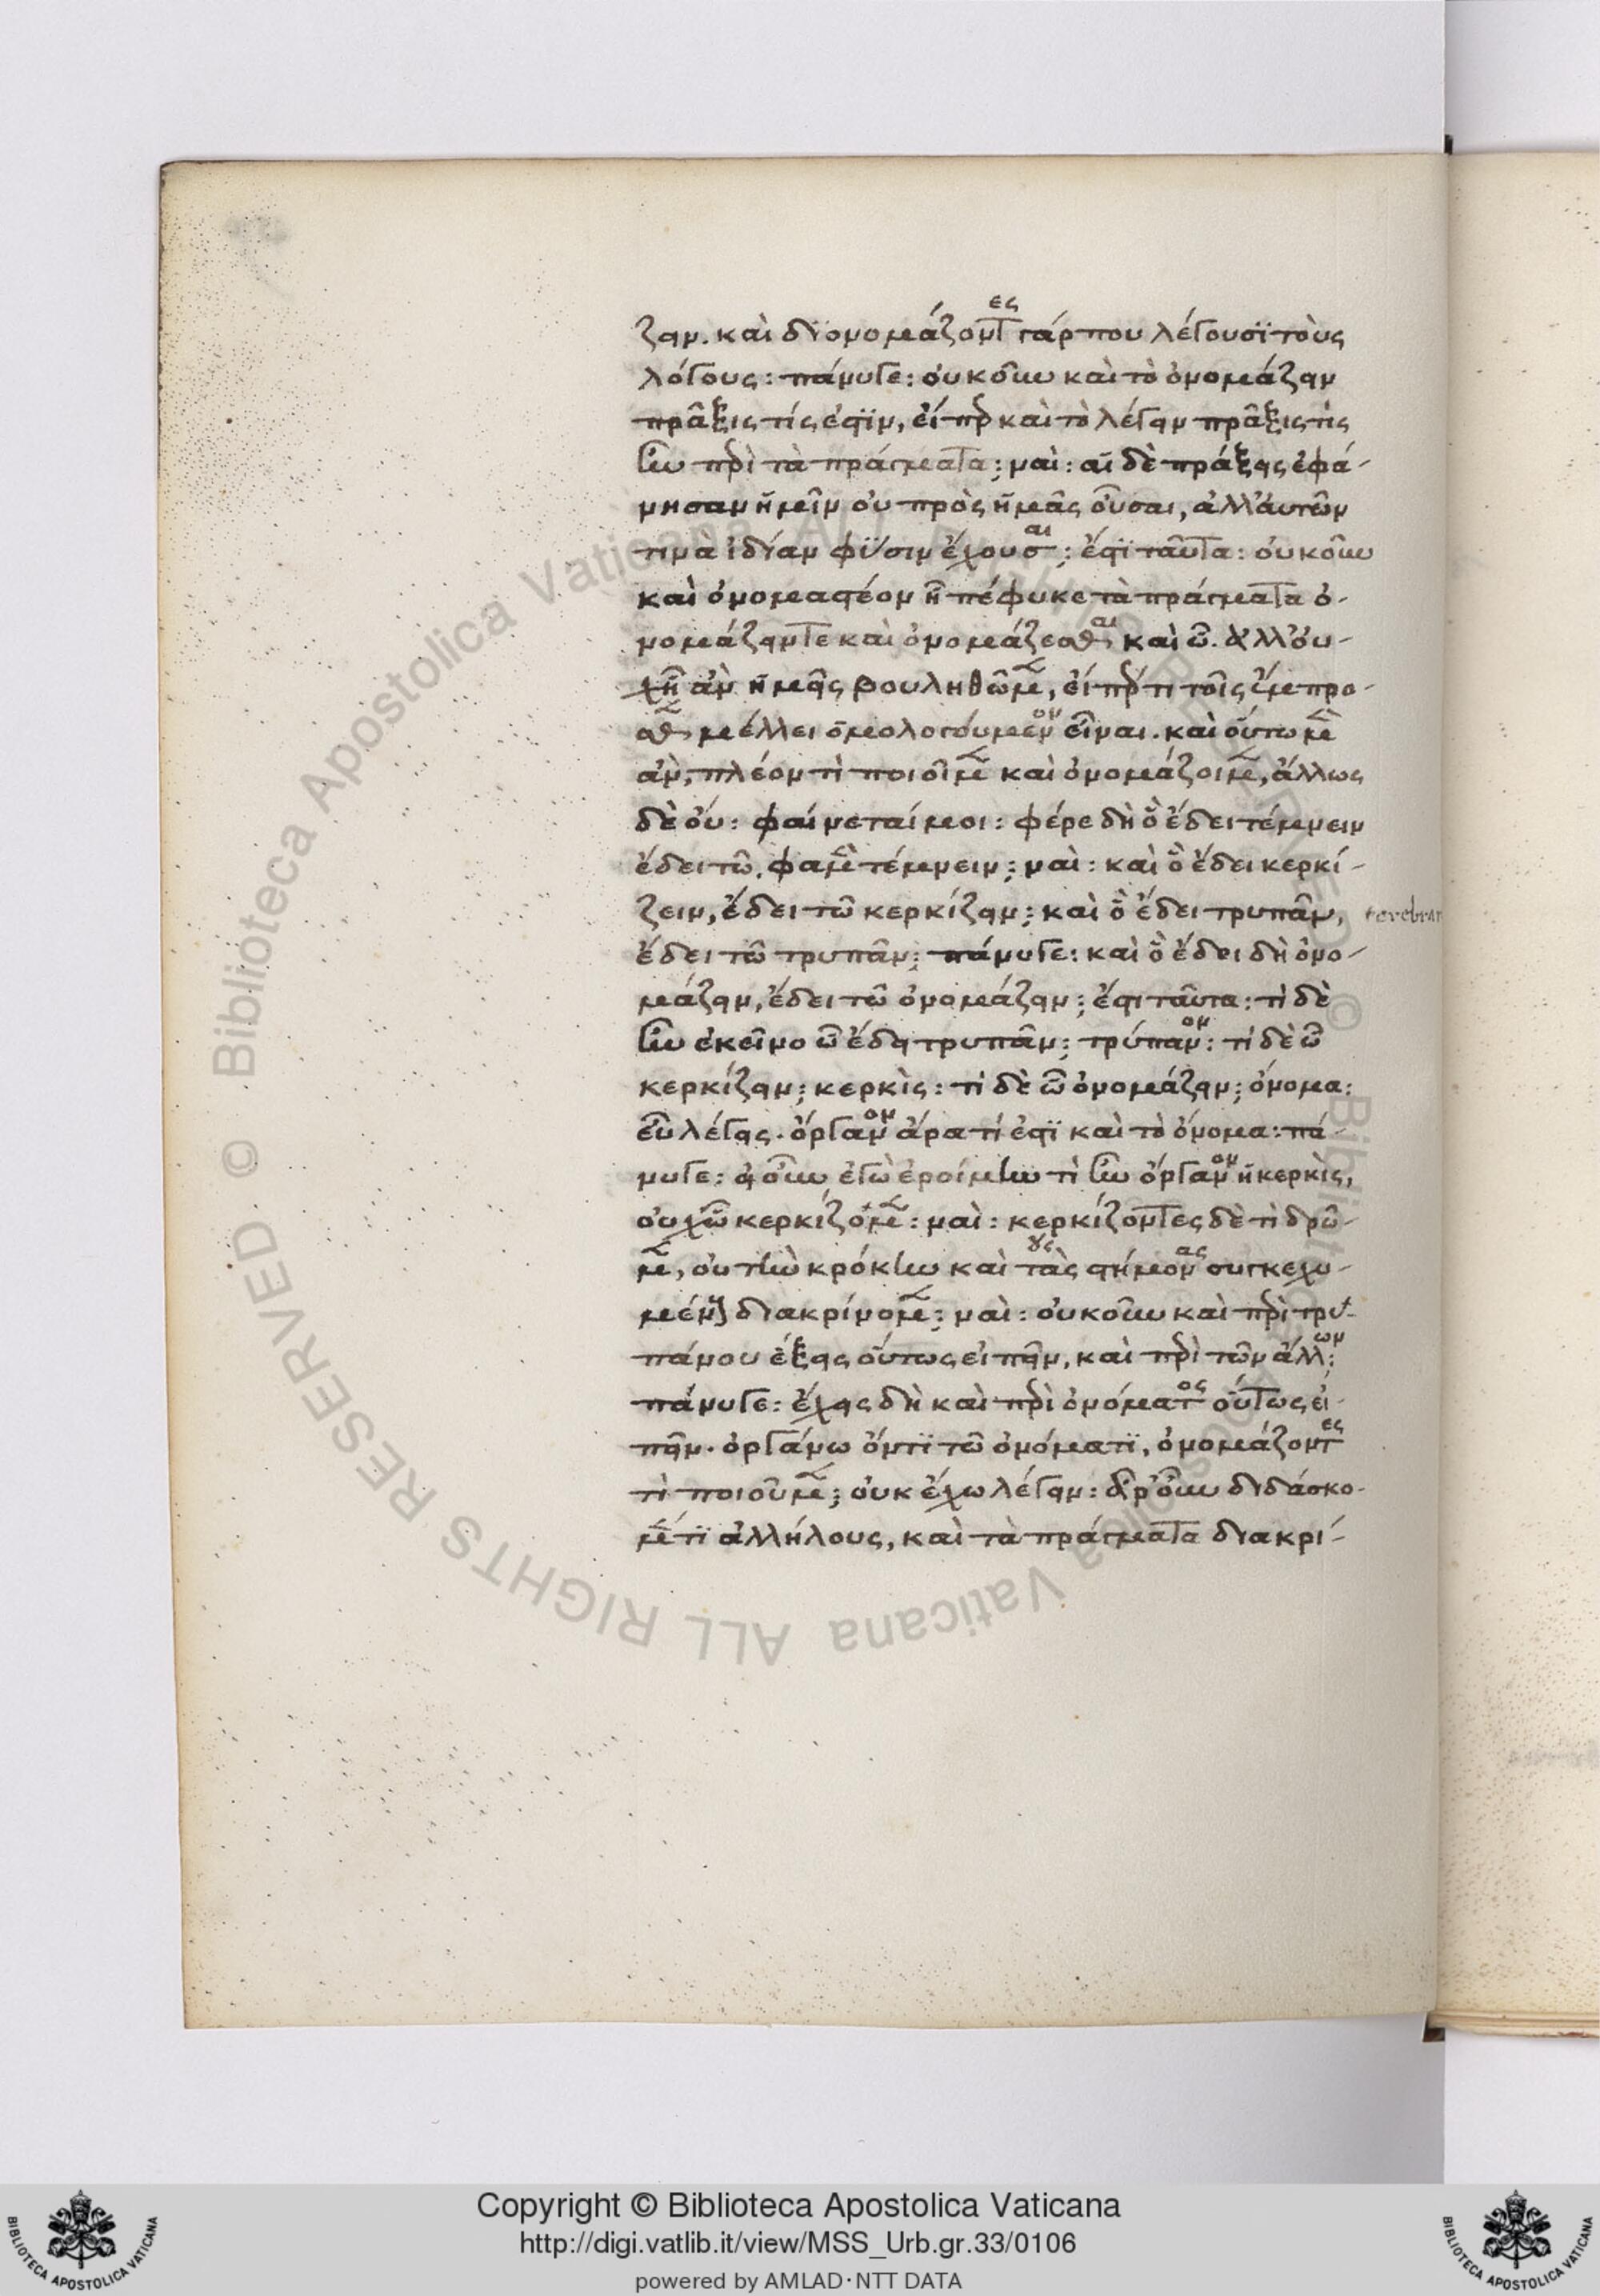 ζειν. καὶ διονομάζοντες γάρ που λέγουσϊ τοὺς
λόγους: πάνυγε: οὐκοῦν καὶ τὸ ὀνομάζειν
πρᾶξις τίς ἐστϊν, εἴπερ καὶ τὸ λέγειν πρᾶξις τὶς
ἦν περὶ τὰ πράγματα; ναὶ: αἳ δὲ πράξεις ἐφά-
νησαν ἡμῖν οὐ πρὸς ἡμᾶς οὖσαι, ἀλλ' αὐτῶν
τινὰ ἰδίαν φύσιν ἔχουσαι; ἔστϊ ταῦτα: οὐκοῦν
καὶ ὀνομαστέον ἧ πέφυκε τὰ πράγματα ὀ-
νομάζειντε καὶ ὀνομάζεσθαι καὶ ὧ. ἀλλ' οὐ-
χ' ἧ ἂν ἡμεῖς βουληθῶμεν, εἴπερ τι τοῖς ἔμπρο-
σθεν μέλλει ὁμολογούμενον εἶναι. καὶ οὕτω μὲν
ἂν, πλέον τὶ ποιοῖμεν καὶ ὀνομάζοιμεν, ἄλλως
δὲ οὔ: φαίνεταί μοι: φέρε δὴ ὃ ἔδει τέμνειν
ἔδει τῶ, φαμὲν τέμνειν; ναὶ: καὶ ὃ ἔδει κερκί-
ζειν, ἔδει τῶ κερκίζειν; καὶ ὃ ἔδει τρυπᾶν, terebrar
ἔδει τῶ τρυπᾶν; πάνυγε: καὶ ὃ ἔδει δὴ ὀνο-
μάζειν, ἔδει τῶ ὀνομάζειν; ἔστι ταῦτα: τὶ δὲ
ἦν ἐκεῖνο ὧ ἔδει τρυπᾶν; τρύπανον: τί δὲ ὧ
κερκίζειν; κερκὶς: τὶ δὲ ὧ ὀνομάζειν; ὄνομα:
εὖ λέγεις. ὄργανον ἄρα τί ἐστϊ καὶ τὸ ὄνομα: πά-
νυγε: εἰ οὖν ἐγὼ ἐροίμην τὶ ἦν ὄργανον ἡ κερκὶς,
οὐχ ὧ κερκίζομεν: ναὶ: κερκίζοντες δὲ τὶ δρῶ-
μεν, οὐ τὴν κρόκην καὶ τοὺς στήμονας συγκεχυ-
μένους διακρίνομεν; ναὶ: οὐκοῦν καὶ περὶ τρυ-
πάνου ἕξεις οὕτως εἰπεῖν, καὶ περὶ τῶν ἄλλων;
πάνυγε: ἔχεις δὴ καὶ περὶ ὀνόματος οὕτως εἰ-
πεῖν. ὀργάνω ὄντϊ τῶ ὀνόματϊ, ὀνομάζοντες
τὶ ποιοῦμεν; οὐκ ἔχω λέγειν: ἆρ' οὖν διδάσκο-
μέν τϊ ἀλλήλους, καὶ τὰ πράγματα διακρί-
Copyright © Biblioteca Apostolica Vaticana
http://digi.vatlib.it/view/MSS_Urb.gr.33/0106
powered by AMLAD·NTT DATA